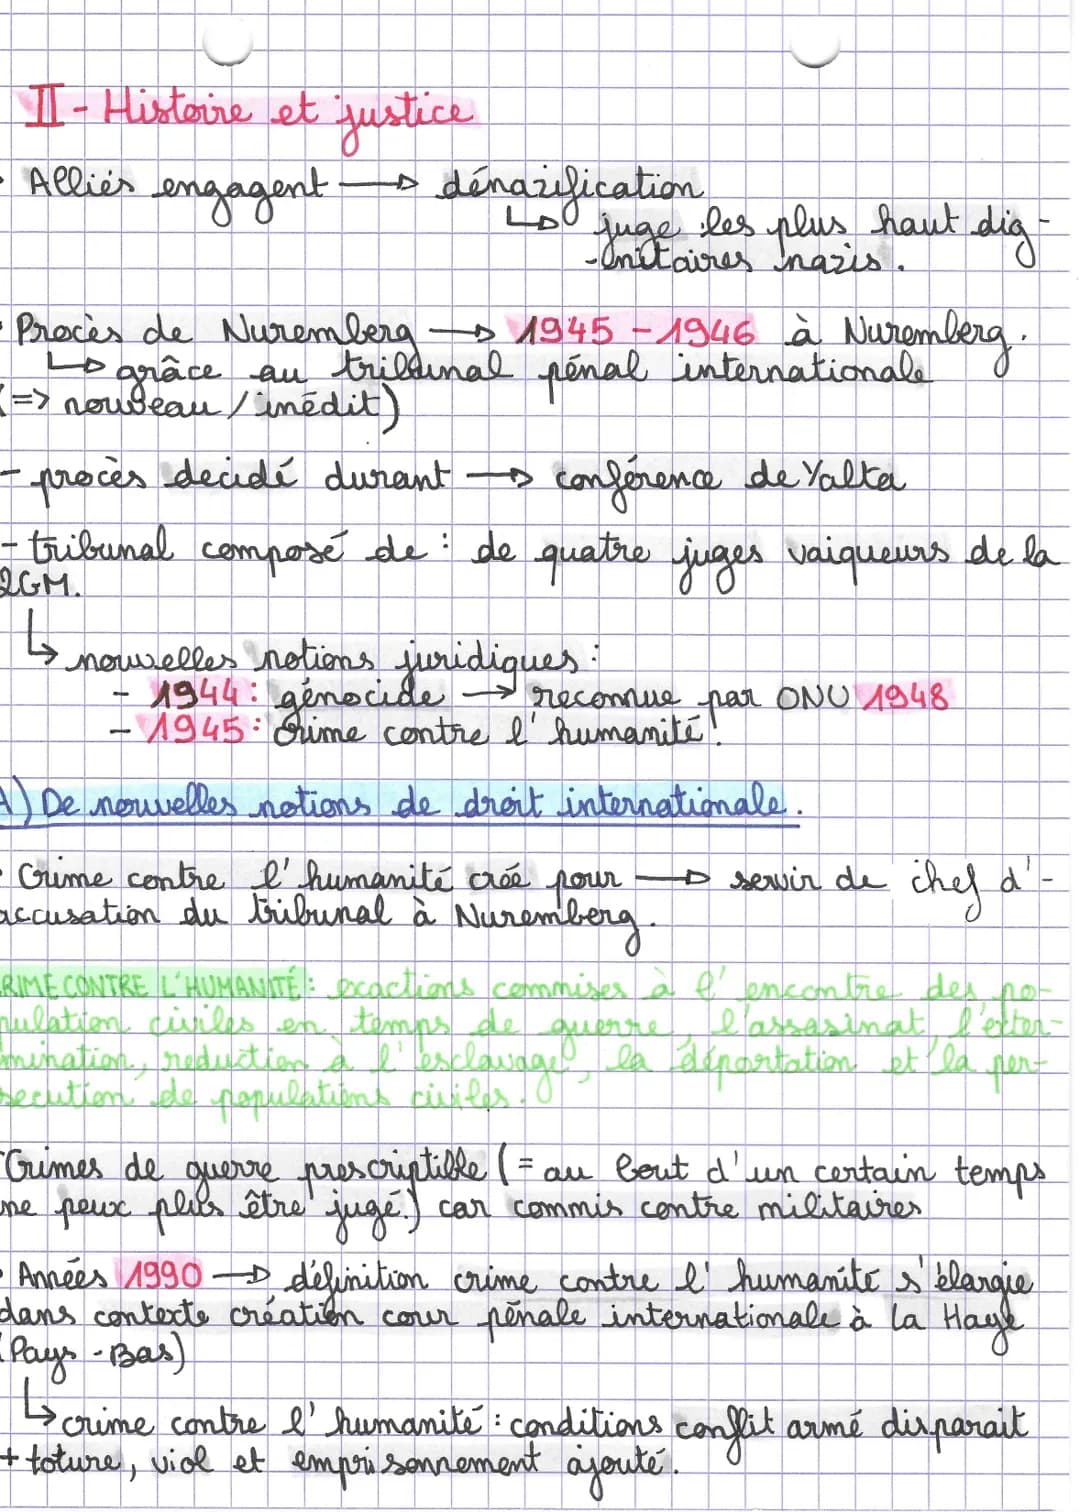 II - Histoire et justice
• Alliés engagent → dénazification
↳ juge les plus haut dig-
-nitaires nazis.
• Procès de Nuremberg → 1945 - 1946 à Nuremberg.
↳ grâce au tribunal pénal internationale
(=> nouveau / inédit)
- procès decidé durant → conférence de Yalta
- tribunal composé de : de quatre juges vaiqueurs de la
2GM.
↳ nouvelles notions juridiques :
- 1944 : génocide → reconnue par ONU 1948
- 1945 : crime contre l'humanité.
A) De nouvelles notions de droit internationale.
• Crime contre l'humanité créé pour → servir de chef d'-
accusation du tribunal à Nuremberg.
CRIME CONTRE L'HUMANITÉ : exactions commises à l'encontre des po-
pulation civiles en temps de guerre, l'assasinat, l'exter-
mination, reduction à l'esclavage, la déportation et la per-
secution de populations civiles.
Crimes de guerre prescriptible (= au bout d'un certain temps
ne peux plus être jugé.) car commis contre militaires
• Années 1990 → définition crime contre l'humanité s'élargie
dans contexte création cour pénale internationale à la Haye
(Pays-Bas)
↳ crime contre l'humanité : conditions conflit armé disparait
+ toture, viol et emprisonnement ajouté.